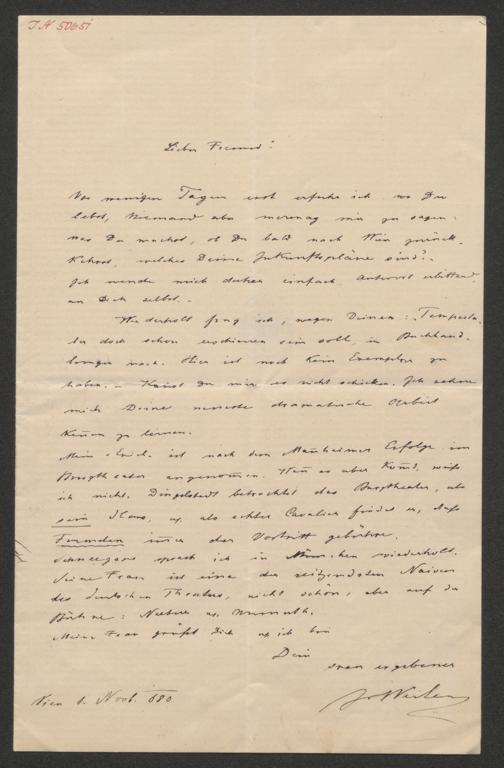 I.N. 50651
Lieber Freund!
Vor wenigen Tagen erst erfuhr ich wo Du
lebst, Niemand aber vermag mir zu sagen:
was Du machst, ob Du bald nach Wien zurück-
kehrst, welches Deine Zukunftspläne sind?
Ich wende mich daher einfach, Antwort erbittend,
an Dich selbst.
Wiederholt frug ich, wegen Deinem:
der doch schon erschienen sein soll, in Buchhand-
lungen nach. Hier ist noch kein Exemplar zu
haben. Kannst Du mir es nicht schicken. Ich sehne
mich Deine neueste dramatische Arbeit
kennen zu lernen.
Mein ist nach dem Mannheimer Erfolge im
Burgtheater angenommen. Wann es aber kommt, weiß
ich nicht. Dingelstedt betrachtet das Burgtheater, als
sein Haus, als echter Cavalier findet er, daß
Fremden immer der Vortritt gebühre.
sprach ich in München wiederholt.
Seine Frau ist eine der reizendsten Naiven
des deutschen Theaters, nicht schön, aber auf der
Bühne: Natur Anmuth.
Meine Frau grüßt Dich ich bin
Dein
treu ergebener
Weilen
Wien Nov. 880